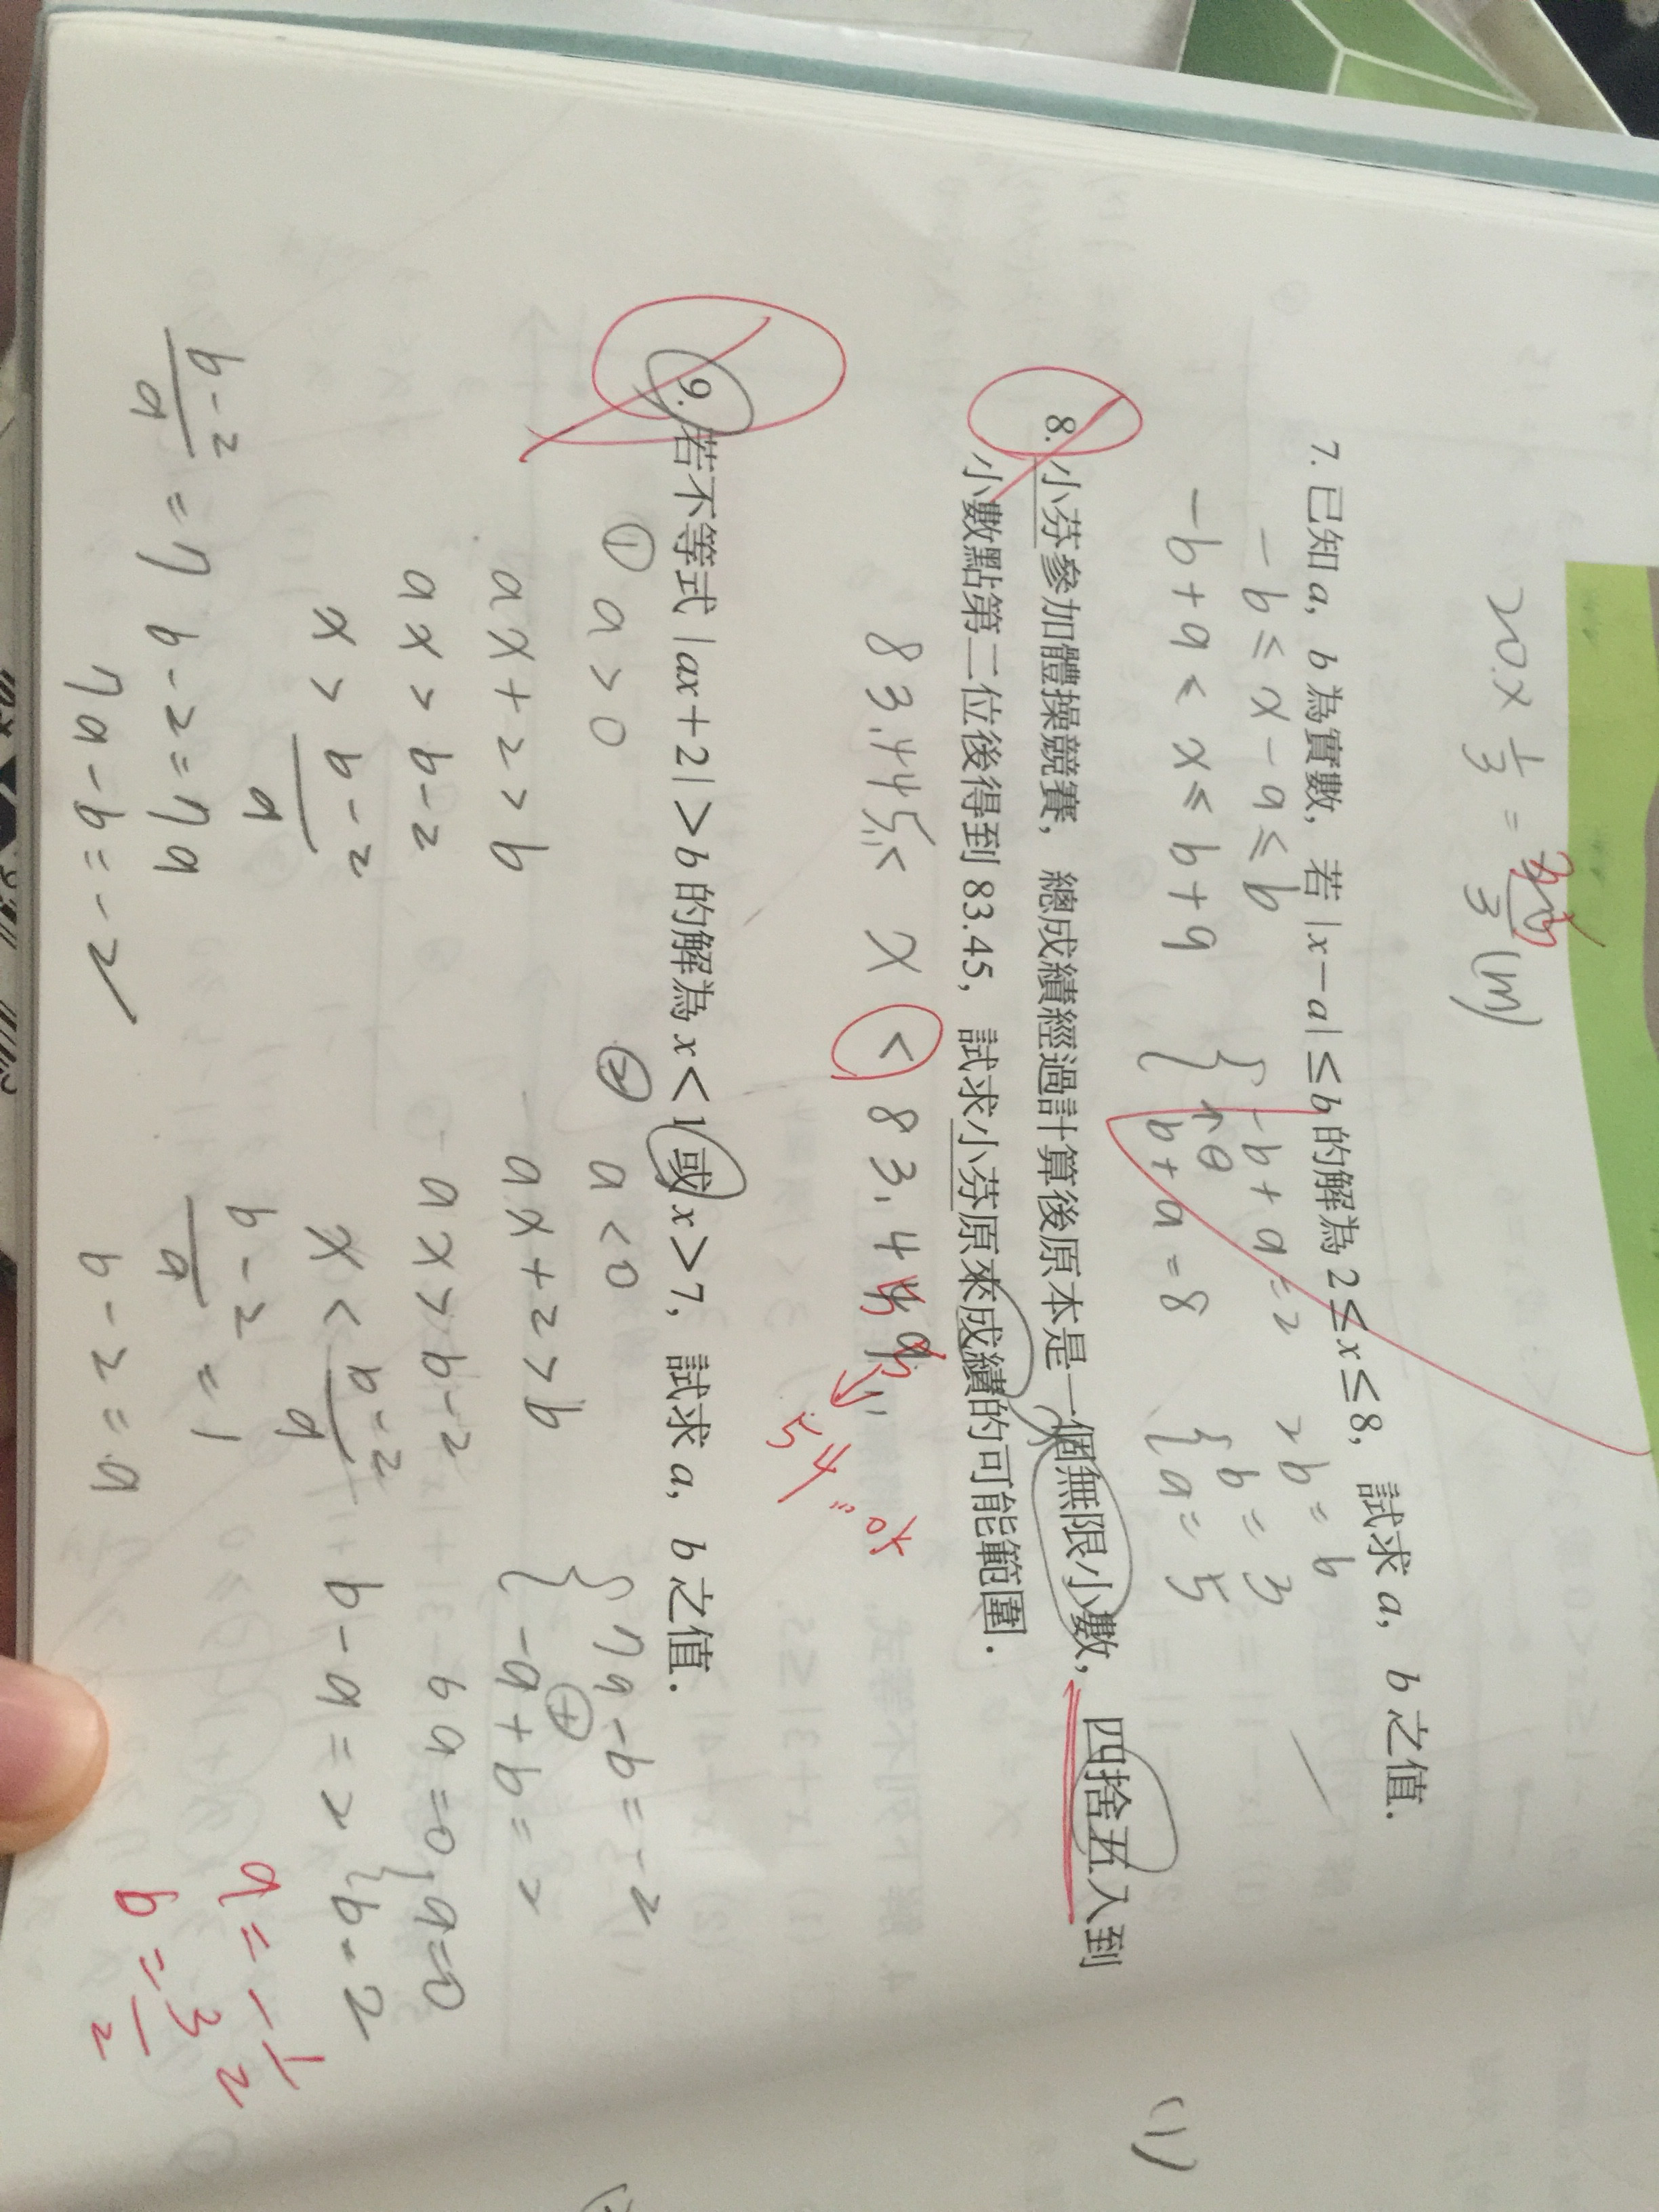 20×1/3=20/3(m)
7. 已知 a, b 為實數, 若 |x−a|≤b 的解為 2≤x≤8, 試求 a, b 之值.
−b≤x−a≤b
−b+a≤x≤b+a
{−b+a=2
b+a=8
2b=6
{b=3
a=5
8. 小芬參加體操競賽, 總成績經過計算後原本是一個無限小數, 四捨五入到
小數點第二位後得到 83.45, 試求小芬原來成績的可能範圍.
83.445< x < 83.4
54
9. 若不等式 |ax+2|>b 的解為 x<1 或 x>7, 試求 a, b 之值.
① a>0
ax+2>b
ax>b−2
x>b−2/a
b−2/a=7
b−2=7a
7a−b=−2
② a<0
ax+2>b
ax>b−2
x<b−2/a
b−2/a=1
b−2=a
b−a=2
{7a−b=−2
−a+b=2
6a=0
{a=0
b=2
a=−1/2
b=3/2
(1)